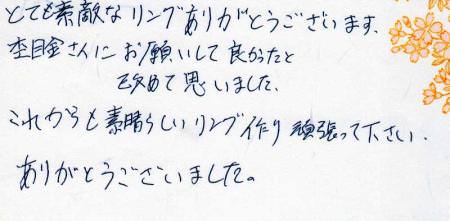 とても素敵なリングありがとうございます、
杢目金さんにお願いして良かったと
改めて思いました、
これからも素晴らしいリング作り頑張って下さい、
ありがとうございました。